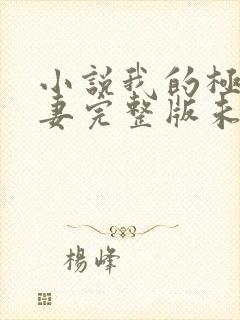 小説我的極
妻完整版未
楊峰